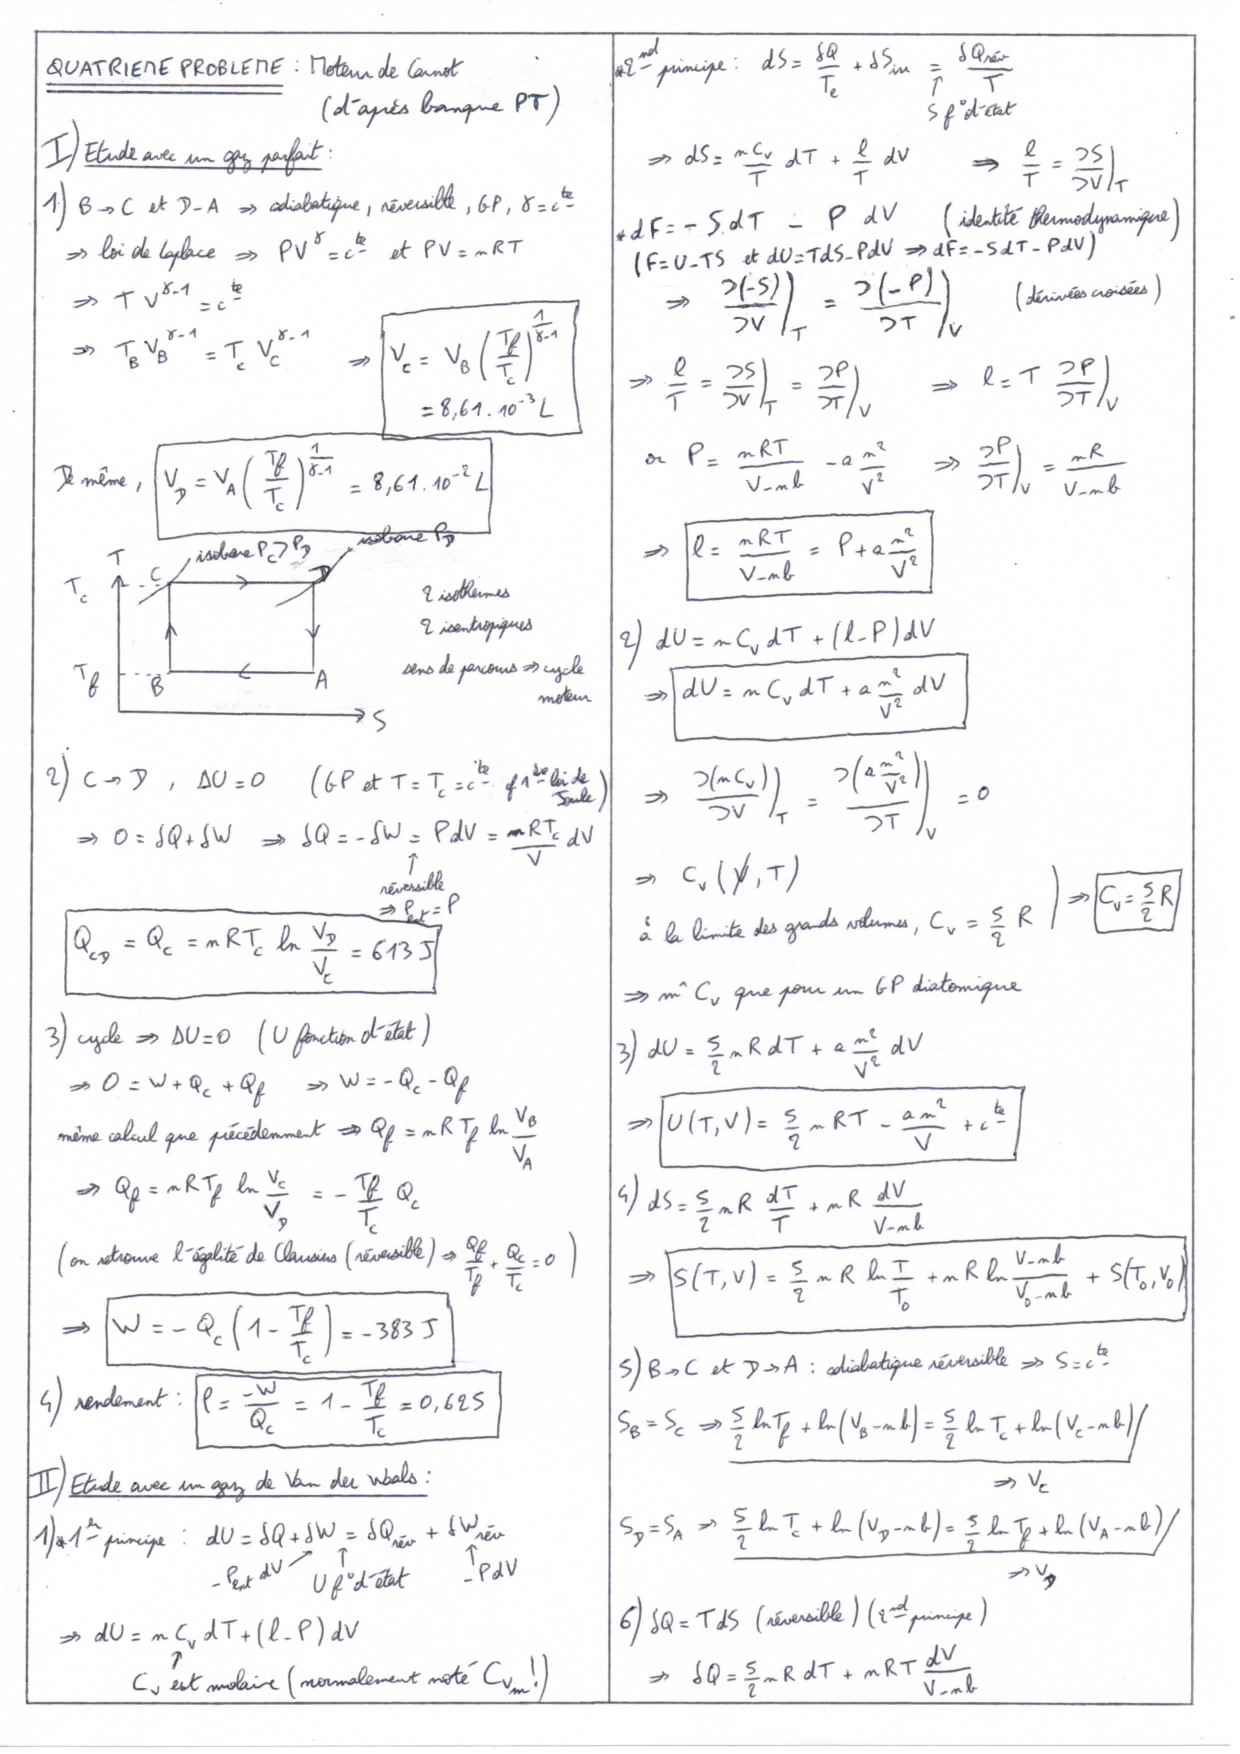 QUATRIEME PROBLEME : Moteur de Carnot
(d'après banque PT)
I) Etude avec un gaz parfait :
1) B→C et D-A ⇒ adiabatique, réversible, GP, γ = c^te
⇒ loi de Laplace ⇒ PV^γ = c^te et PV = nRT
⇒ T V^(γ-1) = c^te
⇒ T_B V_B^(γ-1) = T_c V_C^(γ-1) ⇒ V_C = V_B (T_f/T_c)^(1/(γ-1))
= 8,61.10^-3 L
De même, V_D = V_A (T_f/T_c)^(1/(γ-1)) = 8,61.10^-2 L
T
isobare P_C > P_D
isobare P_D
T_c
C
D
2 isothermes
2 isentropiques
T_f
B
A
sens de parcours ⇒ cycle
moteur
S
2) C→D, ΔU = 0 (GP et T = T_c = c^te cf 1^ère loi de
Joule)
⇒ 0 = δQ + δW ⇒ δQ = -δW = P dV = nRT_c/V dV
↑
réversible
⇒ P_ext = P
Q_CD = Q_c = nRT_c ln V_D/V_C = 613 J
3) cycle ⇒ ΔU = 0 (U fonction d'état)
⇒ 0 = W + Q_c + Q_f ⇒ W = -Q_c - Q_f
même calcul que précédemment ⇒ Q_f = nRT_f ln V_B/V_A
⇒ Q_f = nRT_f ln V_C/V_D = - T_f/T_c Q_c
(on retrouve l'égalité de Clausius (réversible) ⇒ Q_f/T_f + Q_c/T_c = 0)
⇒ W = -Q_c (1 - T_f/T_c) = -383 J
4) rendement : ρ = -W/Q_c = 1 - T_f/T_c = 0,625
II) Etude avec un gaz de Van der Waals :
1) * 1^er principe : dU = δQ + δW = δQ_rév + δW_rév
-P_ext dV ↑ U f° d'état ↑ -PdV
⇒ dU = n C_v dT + (l - P) dV
↑
C_v est molaire (normalement noté C_vm !)
* 2^nd principe : dS = δQ/T_e + δS_in = δQ_rév/T
↑
S f° d'état
⇒ dS = nC_v/T dT + l/T dV ⇒ l/T = ∂S/∂V)_T
* dF = -S dT - P dV (identité thermodynamique)
(F = U - TS et dU = TdS - PdV ⇒ dF = -SdT - PdV)
⇒ ∂(-S)/∂V)_T = ∂(-P)/∂T)_V (dérivées croisées)
⇒ l/T = ∂S/∂V)_T = ∂P/∂T)_V ⇒ l = T ∂P/∂T)_V
or P = nRT/(V-nb) - a n²/V² ⇒ ∂P/∂T)_V = nR/(V-nb)
⇒ l = nRT/(V-nb) = P + a n²/V²
2) dU = n C_v dT + (l - P) dV
⇒ dU = n C_v dT + a n²/V² dV
⇒ ∂(nC_v)/∂V)_T = ∂(a n²/V²)/∂T)_V = 0
⇒ C_v (V̸, T)
à la limite des grands volumes, C_v = 5/2 R ) ⇒ C_v = 5/2 R
⇒ m^ C_v que pour un GP diatomique
3) dU = 5/2 nR dT + a n²/V² dV
⇒ U(T,V) = 5/2 nRT - an²/V + c^te
4) dS = 5/2 nR dT/T + nR dV/(V-nb)
⇒ S(T,V) = 5/2 nR ln T/T_0 + nR ln (V-nb)/(V_0-nb) + S(T_0,V_0)
5) B→C et D→A : adiabatique réversible ⇒ S = c^te
S_B = S_C ⇒ 5/2 ln T_f + ln(V_B-nb) = 5/2 ln T_c + ln(V_C-nb)
⇒ V_C
S_D = S_A ⇒ 5/2 ln T_c + ln(V_D-nb) = 5/2 ln T_f + ln(V_A-nb)
⇒ V_D
6) δQ = TdS (réversible) (2^nd principe)
⇒ δQ = 5/2 nR dT + nRT dV/(V-nb)